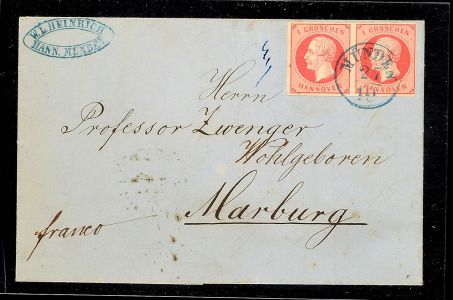 W. L. HEINRICH
HANN. MÜNDEN
1 GROSCHEN 1 GROSCHEN
HANNOVER HANNOVER
MÜNDEN
Herrn
Professor Zwenger
Wohlgeboren
Marburg.
franco